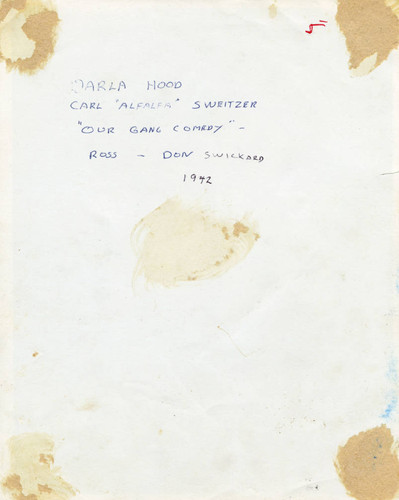 DARLA HOOD
CARL "ALFALFA" SWEITZER
"OUR GANG COMEDY" -
ROSS - DON SWICKARD
1942